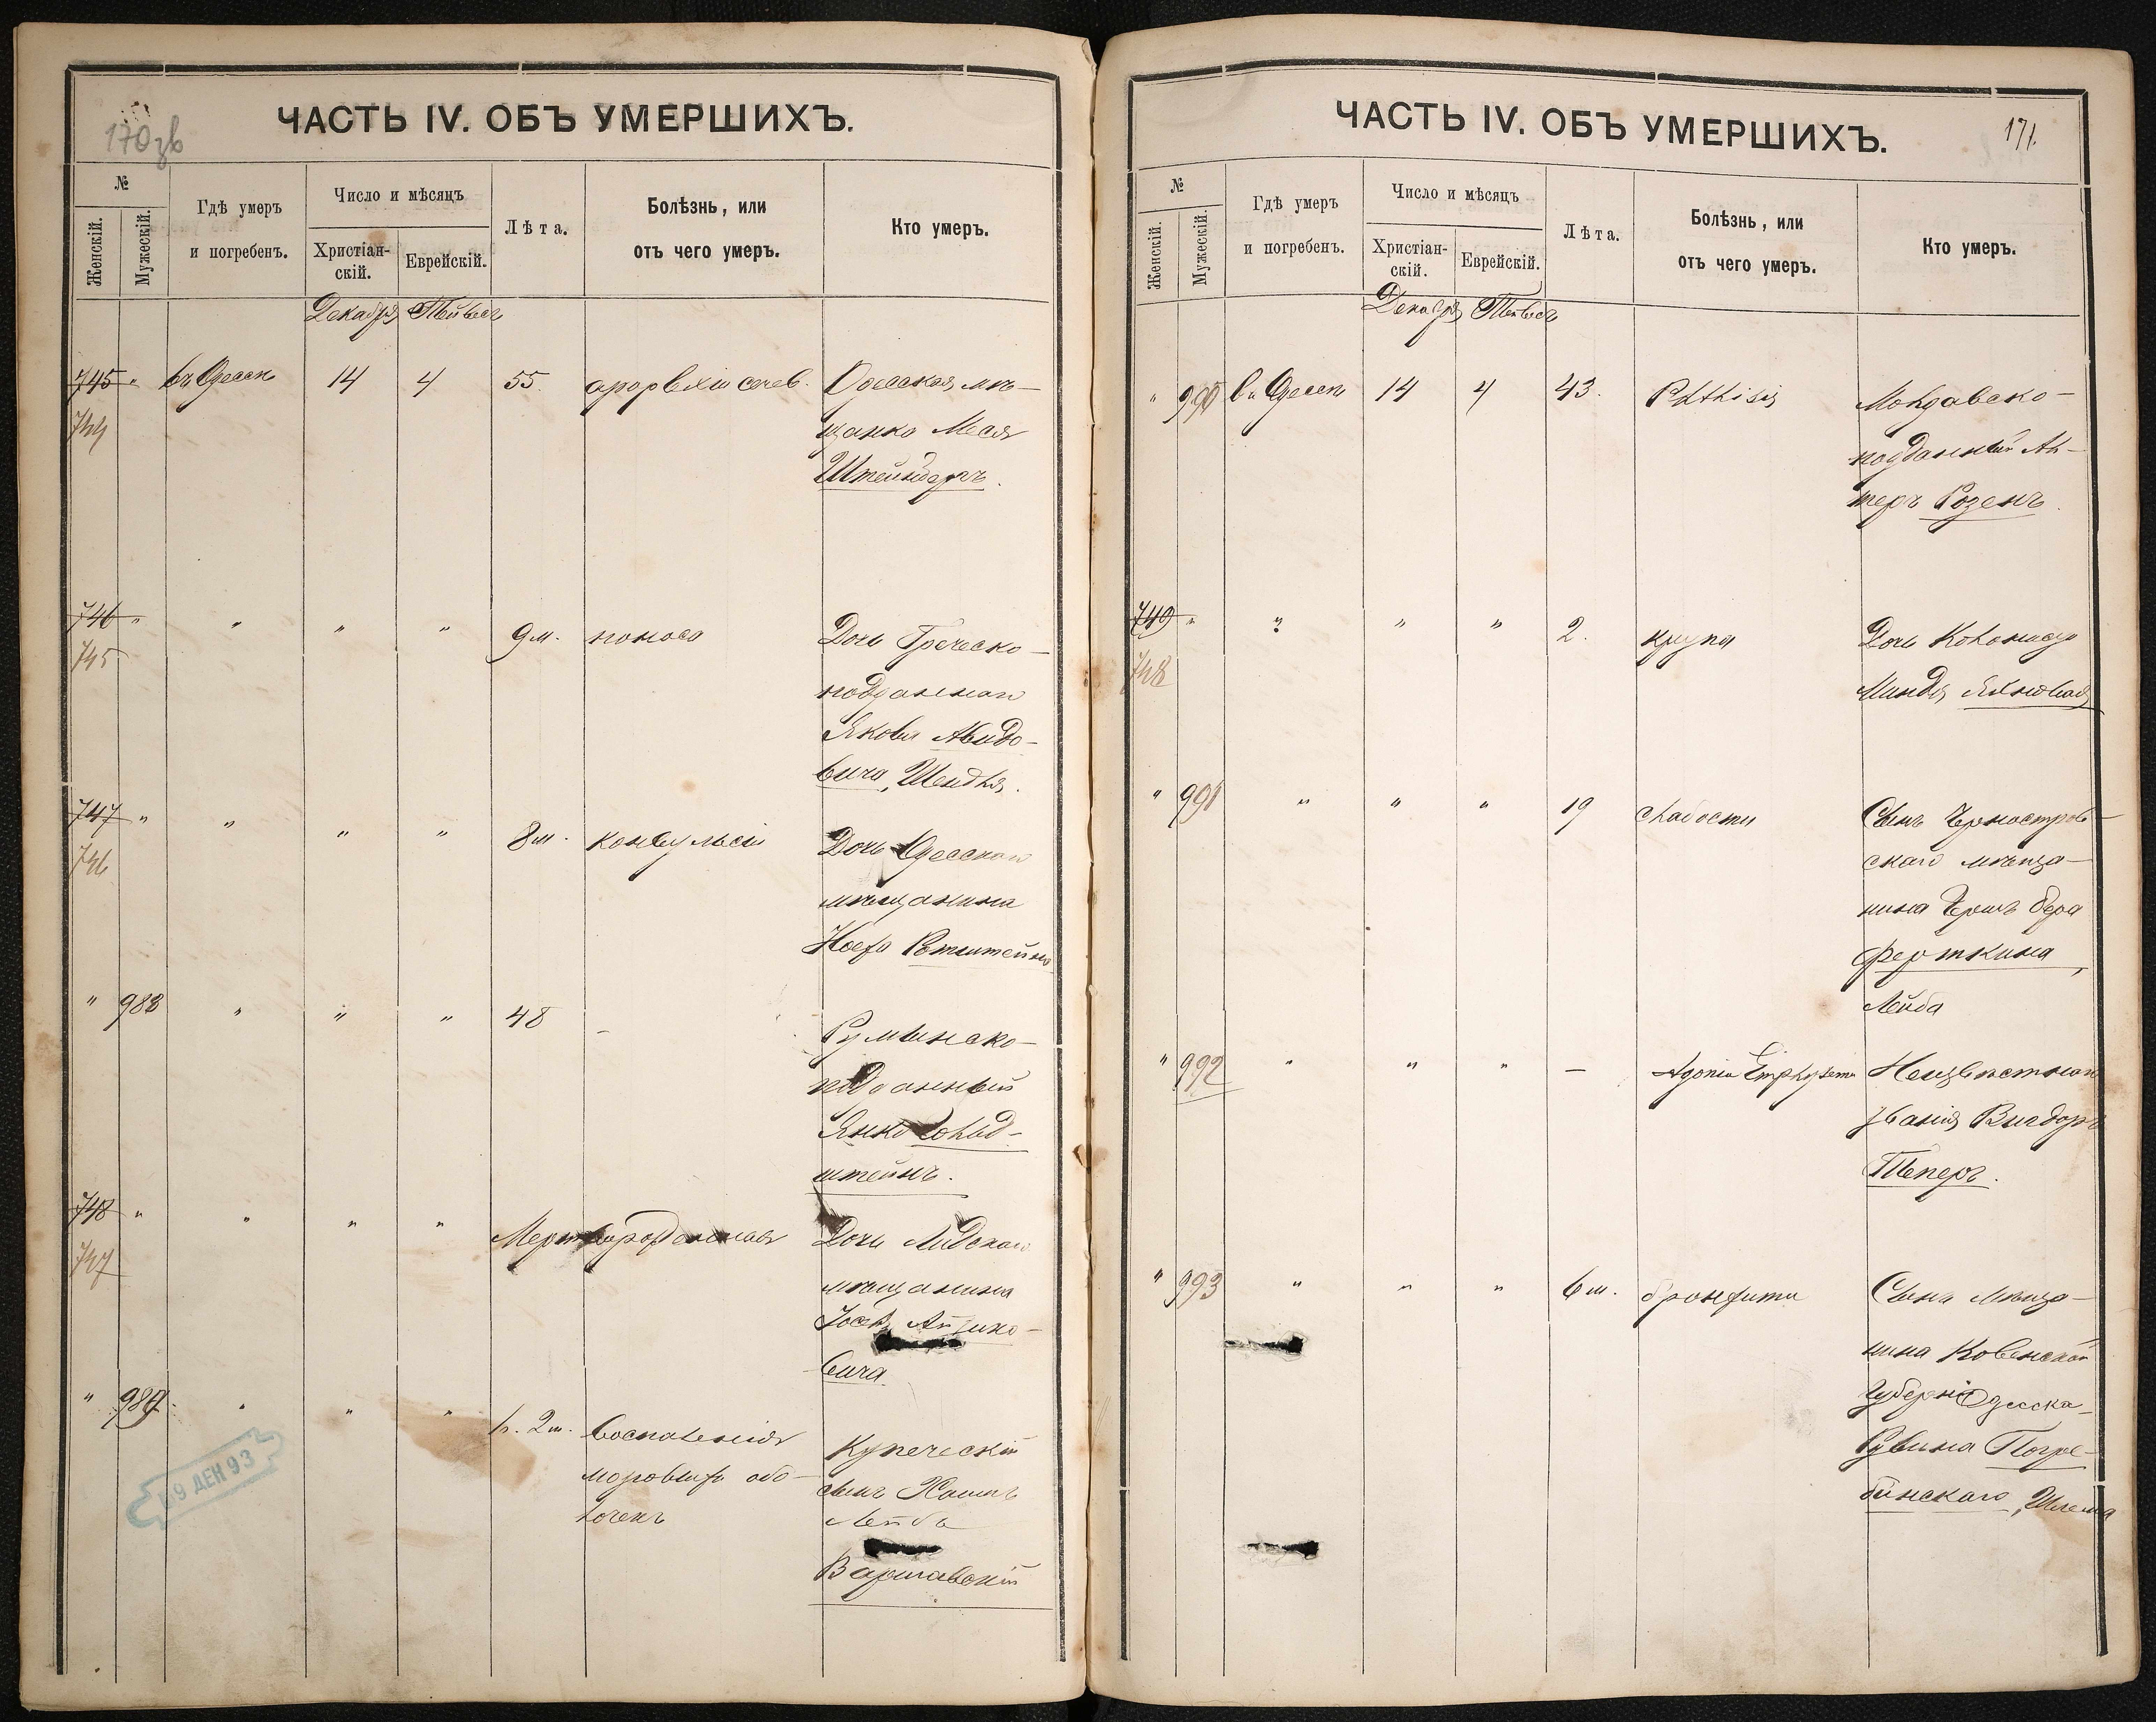 170 зв
ЧАСТЬ IV. ОБЪ УМЕРШИХЪ.
№
Женскій.
Мужескій.
Гдѣ умеръ
и погребенъ.
Число и мѣсяцъ
Христіан-
скій.
Еврейскій.
Лѣта.
Болѣзнь, или
отъ чего умеръ.
Кто умеръ.
Декабря Тейвесъ
745 " въ Одессѣ 14 4 55. Одесская мѣ-
744 щанка Мася
Штейнбергъ.
746 " " " " 9 м. поноса Дочь Греческо-
745 подданнаго
Якова Авидо-
вича, Шендля.
747 " " " " 8 м. конвульсіи Дочь Одесскаго
746 мѣщанина
Ротштейна
" 988 " " " 48 - Румынско-
подданный
Янко Гольд-
штейнъ.
748 " " " " Мертворожденная Дочь Лидскаго
747 мѣщанина
вича
" 989 " " " 2 м. Воспаленія Купеческій
мозговыхъ обо- сынъ Хаимъ
лочекъ Лейба
Варшавскій
9 ДЕК 93
ЧАСТЬ IV. ОБЪ УМЕРШИХЪ.
171.
№
Женскій.
Мужескій.
Гдѣ умеръ
и погребенъ.
Число и мѣсяцъ
Христіан-
скій.
Еврейскій.
Лѣта.
Болѣзнь, или
отъ чего умеръ.
Кто умеръ.
Декабря Тейвесъ
" 990 въ Одессѣ 14 4 43. Phthisis Молдавско-
подданный Ал-
теръ Розенъ.
749 " " " " 2. крупа Дочь Колониста
748 Миндля
" 991 " " " 19 слабости Сынъ Черноостров-
скаго мѣща-
нина Гершъ Бера
Ферткина,
Лейба
" 992 " " " — Agonia Emphysema Неизвѣстнаго
званія Вигдоръ
Теперъ.
" 993 " " " 6 м. бронхита Сынъ Мѣща-
нина Ковенской
губерніи
Рувина Погре-
бинскаго, Шлема